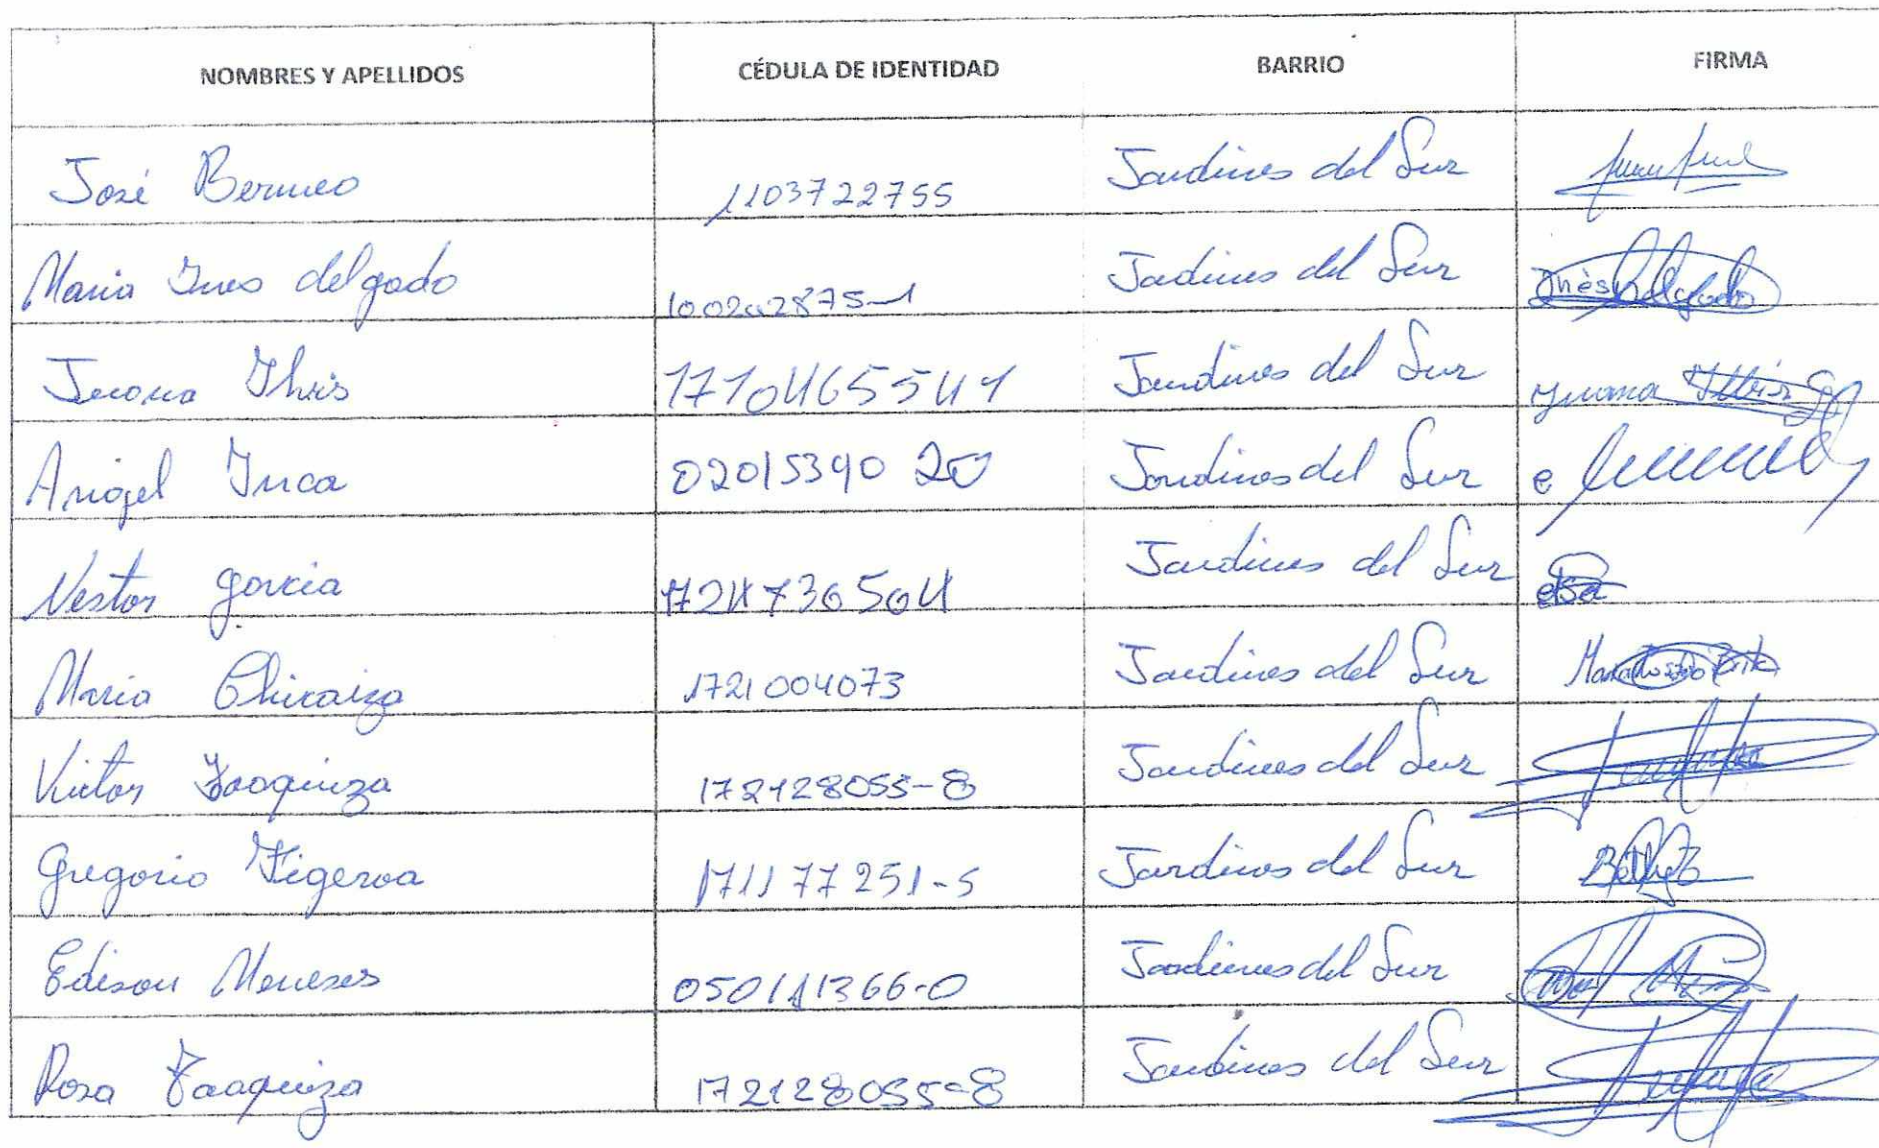 NOMBRES Y APELLIDOS CÉDULA DE IDENTIDAD BARRIO FIRMA
José Bermeo 1103722755 Jardines del Sur
Maria Ines delgado 100202875-1 Jardines del Sur Inés Delgado
Juana Ilvis 1710465541 Jardines del Sur Juana Ilbis
Angel Inca 0201539020 Jardines del Sur
Nestor garcia 1724730504 Jardines del Sur
Maria Chicaiza 1721004073 Jardines del Sur Maria
Victor Toaquiza 172128055-8 Jardines del Sur
Gregorio Figeroa 171177251-5 Jardines del Sur
Edison Meneses 050141366-0 Jardines del Sur
Rosa Toaquiza 172128055-8 Jardines del Sur